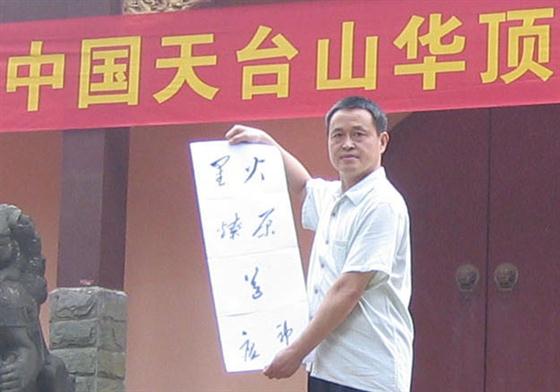 中国天台山华顶
星火
燎原